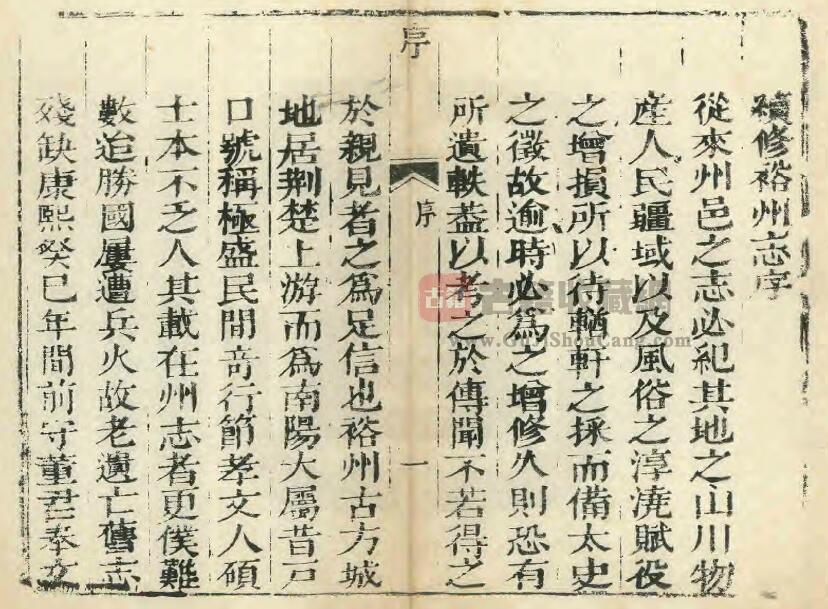 續修裕州志序
從來州邑之志必紀其地之山川物
産人民疆域以及風俗之淳澆賦役
之增損所以待輶軒之採而備太史
之徵故逾時必爲之增修久則恐有
所遺軼葢以考之於傳聞不若得之
序
序
一
於親見者之爲足信也裕州古方城
地居荆楚上游而爲南陽大屬昔戸
口號稱極盛民間竒行節孝文人碩
士本不乏人其載在州志者更僕難
數迨勝國屢遭兵火故老遺亡舊志
殘缺康熙癸巳年間前守董君奉文
古籍收藏網
www.GuJiShouCang.com